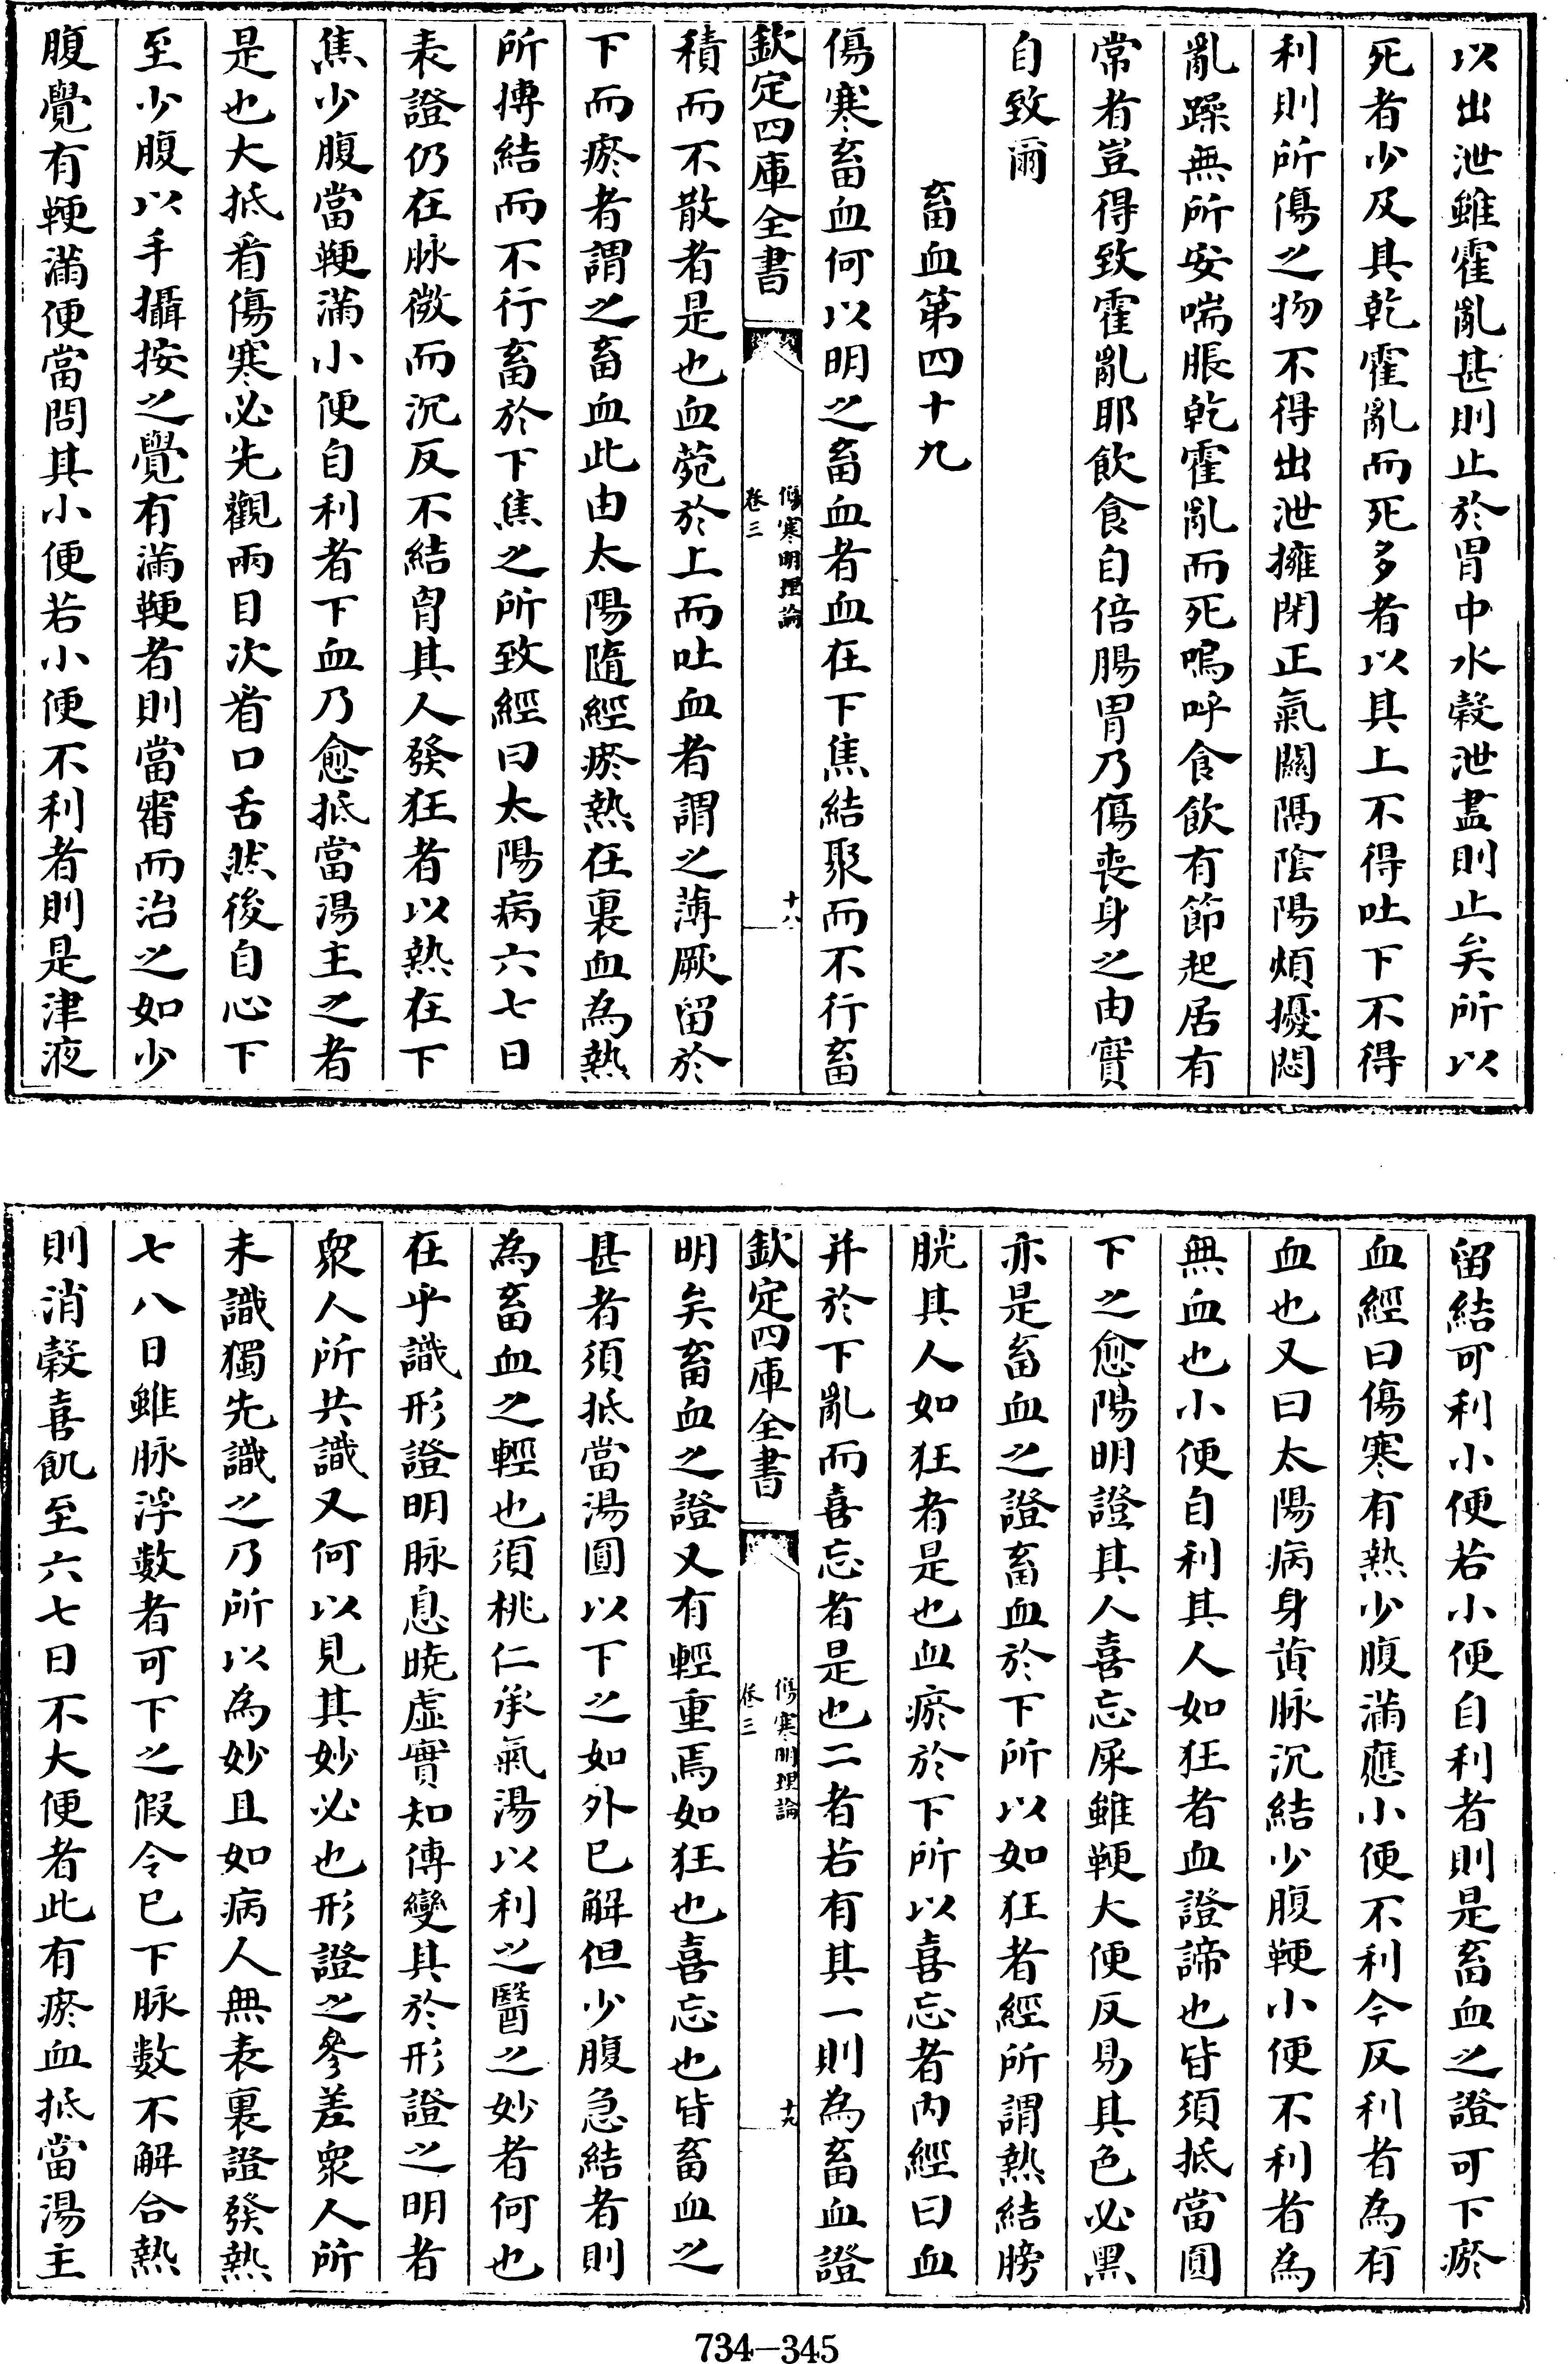 以出泄雖霍亂甚則止於胃中水榖泄盡則止矣所以
死者少及其乾霍亂而死多者以其上不得吐下不得
利則所傷之物不得出泄擁閉正氣關隔隂陽煩擾悶
亂躁無所安喘脹乾霍亂而死嗚呼食飲有節起居有
常者豈得致霍亂耶飲食自倍腸胃乃傷喪身之由實
自致爾
畜血第四十九
傷寒畜血何以明之畜血者血在下焦結聚而不行畜
欽定四庫全書
傷寒明理論
卷三
十八
積而不散者是也血菀於上而吐血者謂之薄厥留於
下而瘀者謂之畜血此由太陽隨經瘀熱在裏血為熱
所摶結而不行畜於下焦之所致經曰太陽病六七日
表證仍在脉微而沉反不結胷其人發狂者以熱在下
焦少腹當鞕滿小便自利者下血乃愈抵當湯主之者
是也大抵看傷寒必先觀兩目次看口舌然後自心下
至少腹以手攝按之覺有滿鞕者則當審而治之如少
腹覺有鞕滿便當問其小便若小便不利者則是津液
留結可利小便若小便自利者則是畜血之證可下瘀
血經曰傷寒有熱少腹滿應小便不利今反利者為有
血也又曰太陽病身黄脉沉結少腹鞕小便不利者為
無血也小便自利其人如狂者血證諦也皆須抵當圓
下之愈陽明證其人喜忘屎雖鞕大便反易其色必黑
亦是畜血之證畜血於下所以如狂者經所謂熱結膀
胱其人如狂者是也血瘀於下所以喜忘者内經曰血
并於下亂而喜忘者是也二者若有其一則為畜血證
欽定四庫全書
傷寒明理論
卷三
十九
明矣畜血之證又有輕重焉如狂也喜忘也皆畜血之
甚者須抵當湯圓以下之如外已解但少腹急結者則
為畜血之輕也須桃仁承氣湯以利之醫之妙者何也
在乎識形證明脉息曉虚實知傳變其於形證之明者
衆人所共識又何以見其妙必也形證之參差衆人所
未識獨先識之乃所以為妙且如病人無表裏證發熱
七八日雖脉浮數者可下之假令已下脉數不解合熱
則消榖喜飢至六七日不大便者此有瘀血抵當湯主
734-345